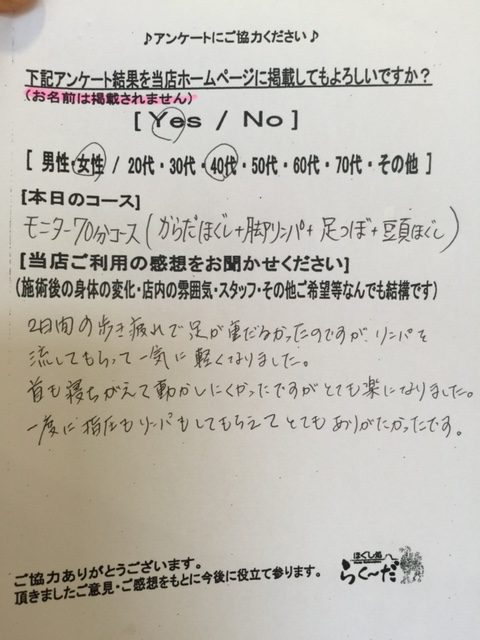 ♪アンケートにご協力ください♪
下記アンケート結果を当店ホームページに掲載してもよろしいですか？
(お名前は掲載されません)
[ Yes / No ]
[ 男性・女性 / 20代・30代・40代・50代・60代・70代・その他 ]
[本日のコース]
モニター70分コース(からだほぐし+脚リンパ+足つぼ+頭ほぐし)
[当店ご利用の感想をお聞かせください]
(施術後の身体の変化・店内の雰囲気・スタッフ・その他ご希望等なんでも結構です)
2日間の歩き疲れで足が重だるかったのですが、リンパを
流してもらって一気に軽くなりました。
首も寝ちがえて動かしにくかったですがとても楽になりました。
一度に指圧もリンパもしてもらえてとてもありがたかったです。
ほぐし処
らく〜だ
ご協力ありがとうございます。
頂きましたご意見・ご感想をもとに今後に役立て参ります。